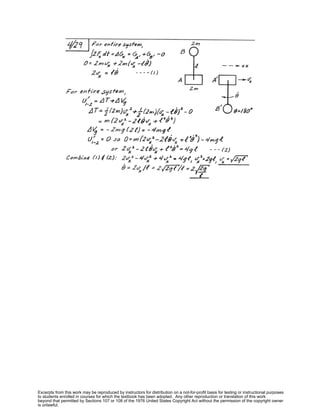 4/29 For entire system,
∫ΣFₓdt = ΔGₓ = Gₓ₂ + Gₓ₁ = 0
0 = 2mvₐ + 2m(vₐ - lθ̇)
2vₐ = lθ̇ ----(1)
2m
B
l
---- +x
A
2m
A
vₐ
θ̇
B'
θ=180°
For entire system,
U'₁₋₂ = ΔT + ΔVg
ΔT = ½(2m)vₐ² + ½(2m)(vₐ - lθ̇)² - 0
= m(2vₐ² - 2lθ̇vₐ + l²θ̇²)
ΔVg = -2mg(2l) = -4mgl
U'₁₋₂ = 0 so 0 = m(2vₐ² - 2lθ̇vₐ + l²θ̇²) - 4mgl
or 2vₐ² - 2lθ̇vₐ + l²θ̇² = 4gl ---(2)
Combine (1) & (2): 2vₐ² - 4vₐ² + 4vₐ² = 4gl, vₐ² = 2gl, vₐ = √2gl
θ̇ = 2vₐ/l = 2√2gl/l = 2√2g/l
Excerpts from this work may be reproduced by instructors for distribution on a not-for-profit basis for testing or instructional purposes
to students enrolled in courses for which the textbook has been adopted. Any other reproduction or translation of this work
beyond that permitted by Sections 107 or 108 of the 1976 United States Copyright Act without the permission of the copyright owner
is unlawful.